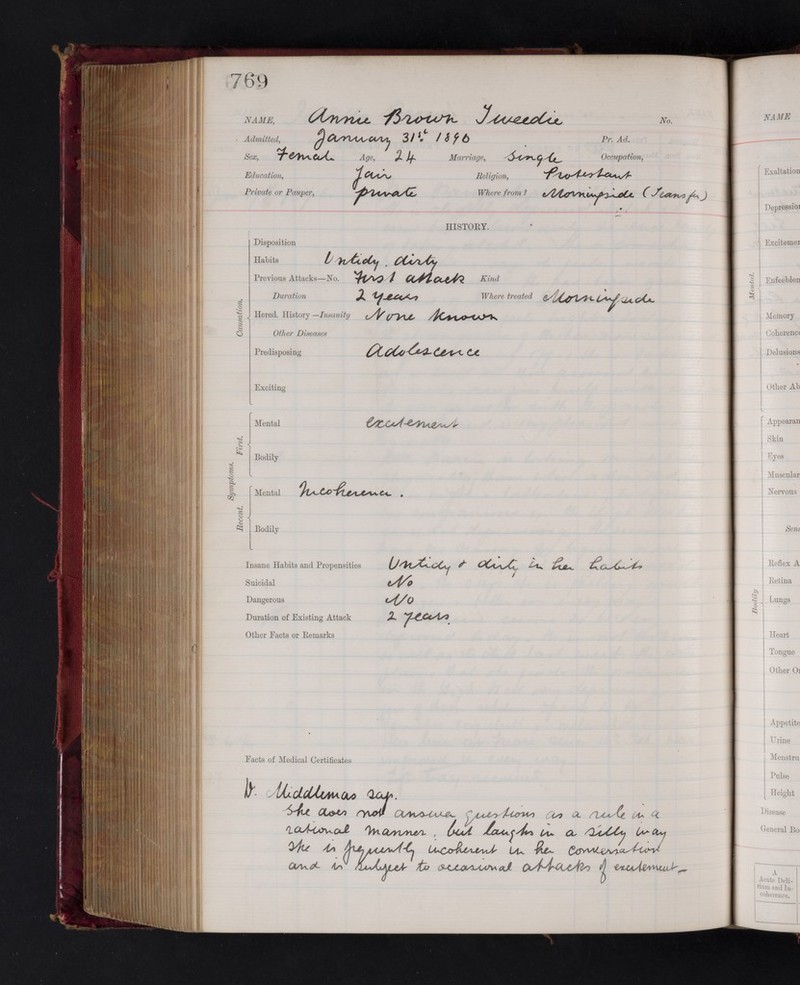 769
NAME, Annie Brown Tweedie No.
Admitted, January 31st 1890 Pr. Ad.
Sex, Female Age, 24 Marriage, Single Occupation,
Education, Fair Religion, Protestant
Private or Pauper, private Where from? Morningside (Transfer)
HISTORY.
Disposition
Habits Untidy. dirty
Previous Attacks—No. First attack Kind
Duration 2 years Where treated Morningside
Hered. History—Insanity None known
Other Diseases
Causation.
Predisposing Adolescence
Exciting
Symptoms.
First.
Mental excitement
Bodily
Recent.
Mental Incoherence.
Bodily
Insane Habits and Propensities Untidy & dirty in her habits
Suicidal No
Dangerous No
Duration of Existing Attack 2 years.
Other Facts or Remarks
Facts of Medical Certificates
Dr. Middlemas says.
She does not answer questions as a rule in a
rational manner, but laughs in a silly way
She is frequently incoherent in her conversation
and is subject to occasional attacks of excitement
NAME
Mental.
Exaltation
Depression
Excitemen
Enfeeblem
Memory
Coherence
Delusions
Other Ab
Bodily
Appearan
Skin
Eyes
Muscular
Nervous
Sens
Reflex A
Retina
Lungs
Heart
Tongue
Other Or
Appetite
Urine
Menstru
Pulse
Height
Disease
General Bo
A
Acute Deli-
rium and In-
coherence.